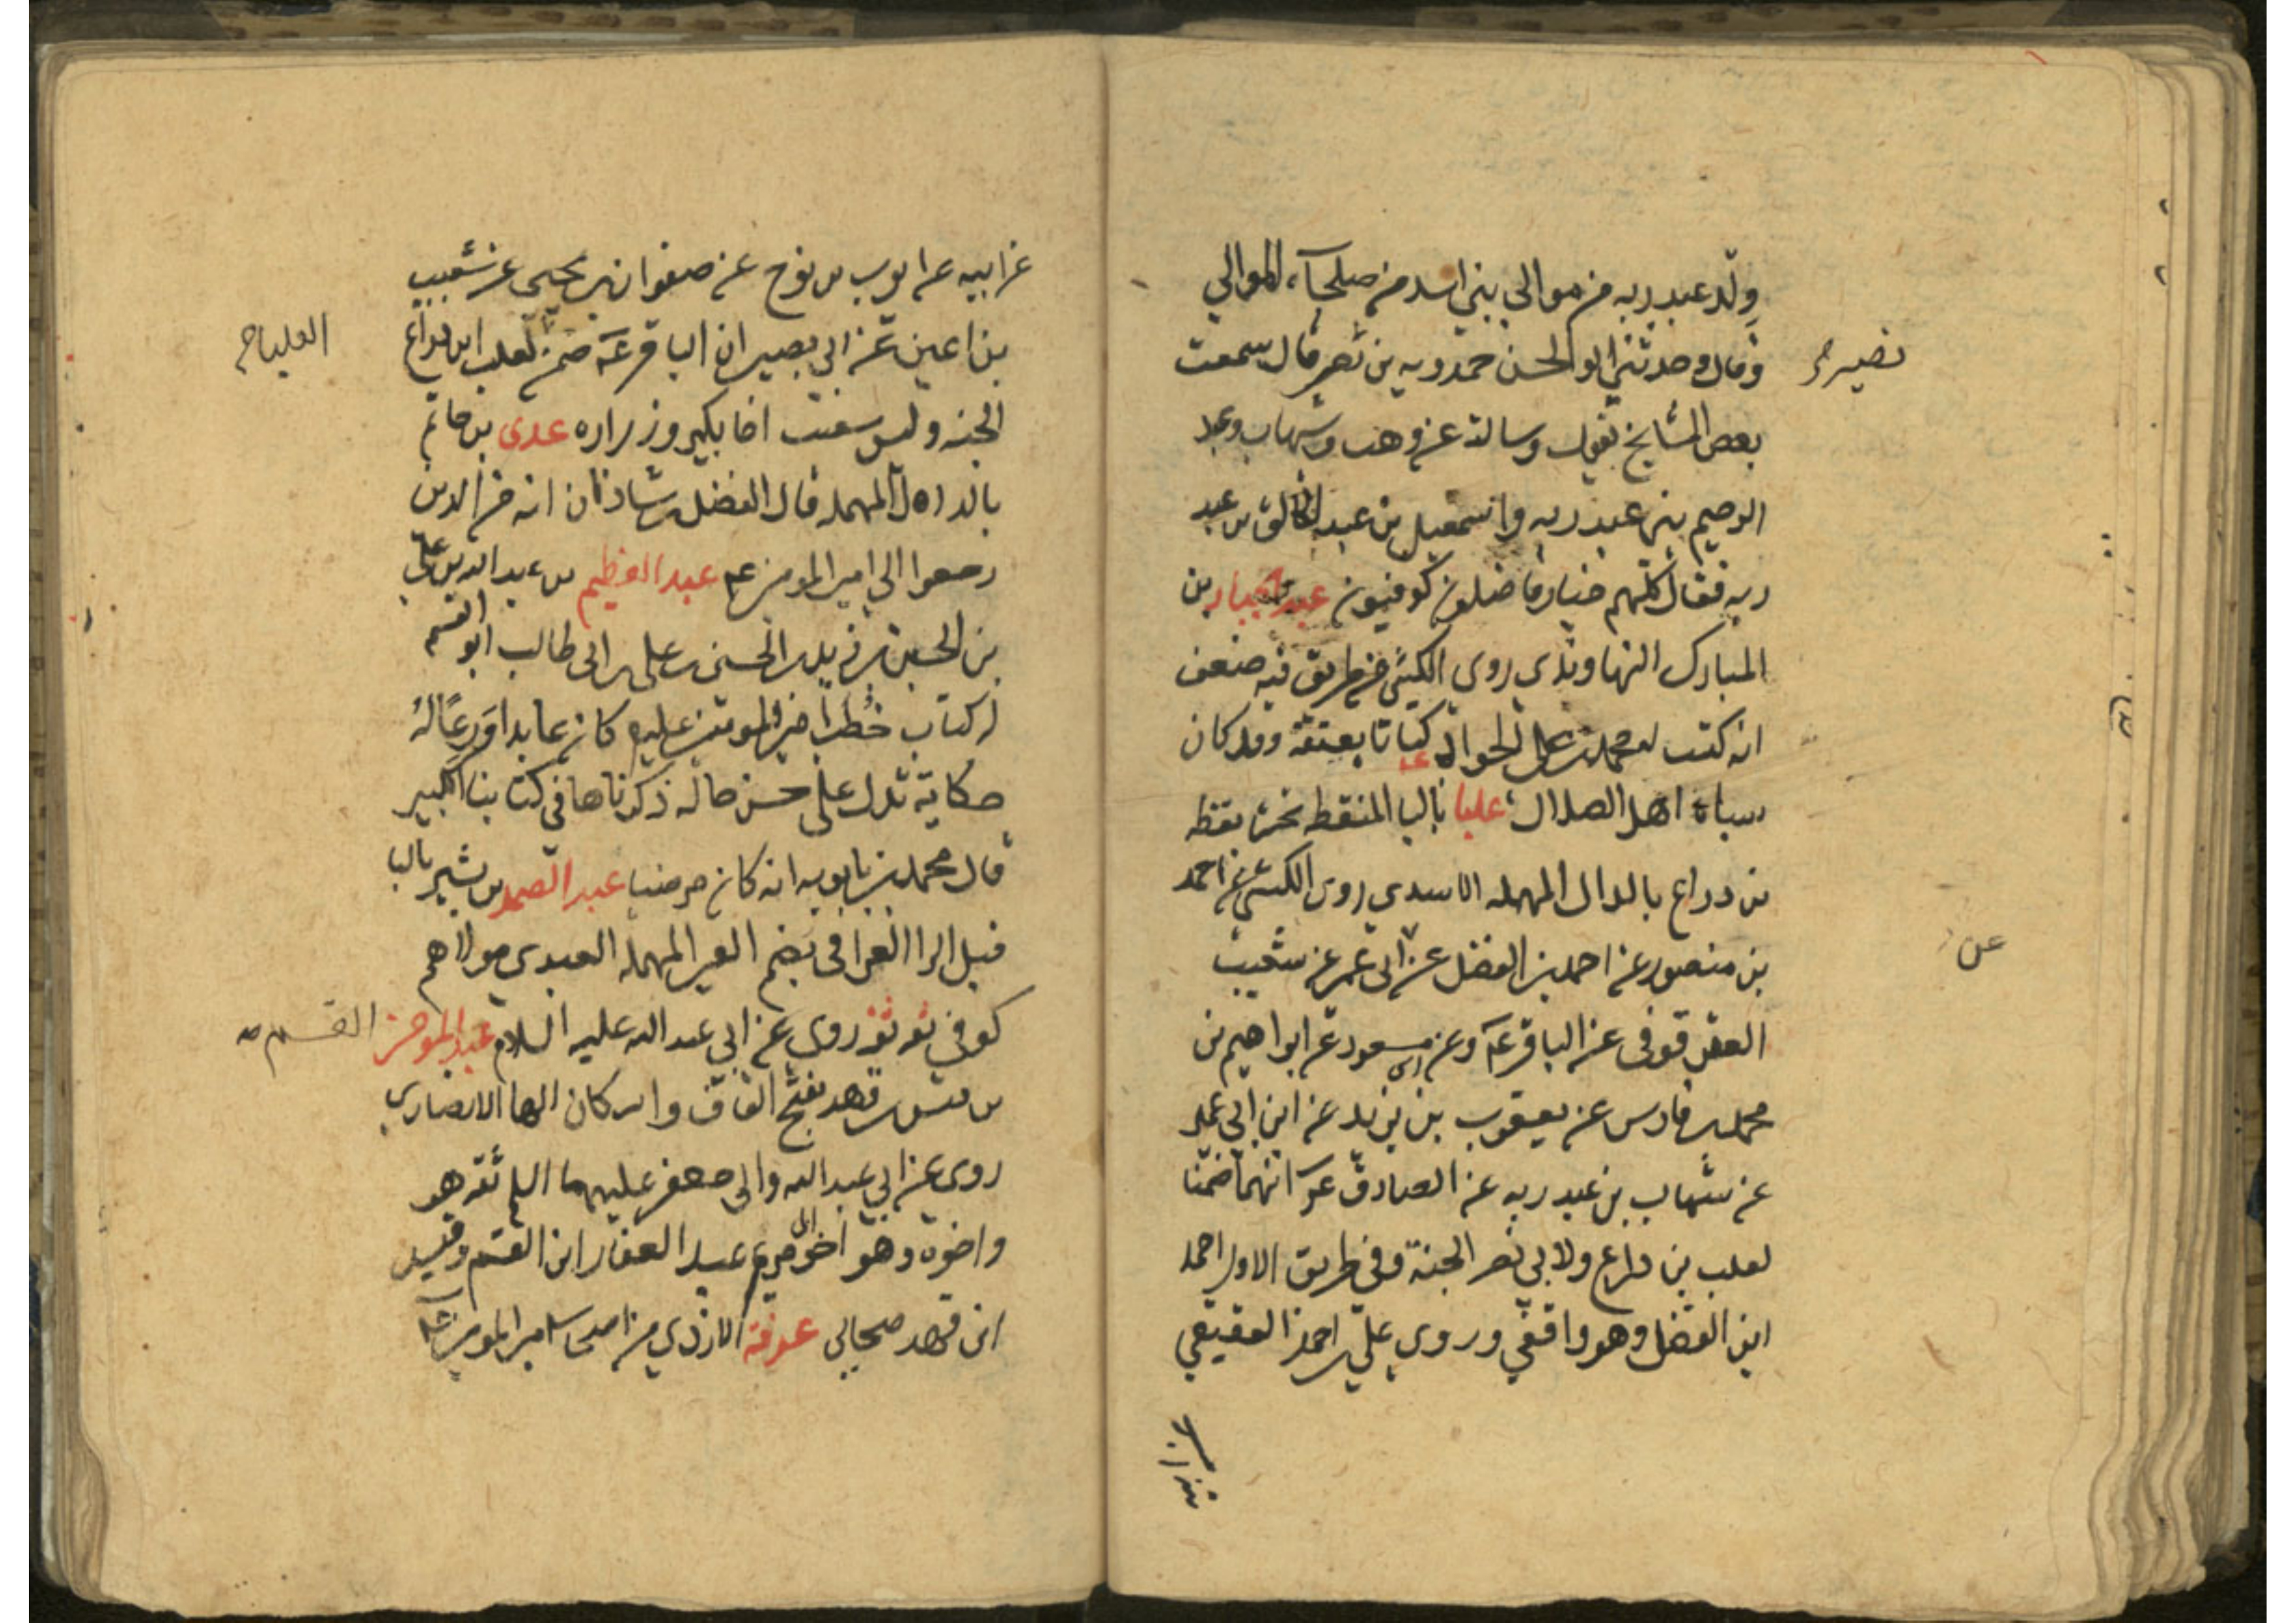 ولد عبد ربه من موالي بني اسد من صلحاء الموالي
وقال وحدثني ابو الحسن حمدويه بن نصر قال سمعت
نصير
بعض المشايخ يقول وسالته عن وهب وشهاب وعبد
الرحيم بني عبد ربه واسمعيل بن عبد الخالق بن عبد
ربه فقال كلهم خيار فاضلون كوفيون عبد الجبار بن
المبارك النهاوندي روى الكشي من طريق فيه ضعف
انه كتب له محمد بن علي الجواد ع كتابا بعتقه وقد كان
سباه اهل الضلال علبا بالبا المنقطه تحتها نقطه
بن دراع بالدال المهمله الاسدي روى الكشي عن احمد
بن منصور عن احمد بن الفضل عن ابي عمير عن شعيب
عن
العقرقوفي عن الباقر ع وعن مسعود عن ابراهيم بن
محمد بن فارس عن يعقوب بن يزيد عن ابن ابي عمير
عن شهاب بن عبد ربه عن الصادق ع انهما ضمنا
لعلب بن دراع ولابي بصر الجنة وفي طريق الاول احمد
ابن الفضل وهو واقفي وروى علي بن احمد العقيقي
عن ابيه عن ايوب بن نوح عن صفوان بن يحيى عن شعيب
بن اعين عن ابي بصير ان الباقر ع ضمن لعلب ابن دراع
الجنه وليس اخا بكير وزراره عدى بن حاتم
بالدال المهمله قال الفضل بن شاذان انه من الذين
رجعوا الى امير المومنين ع عبد العظيم بن عبد الله بن علي
بن الحسين بن زيد بن الحسن بن علي بن ابي طالب ابو القسم
له كتاب خطب امير المومنين عليه كان عابدا ورعا له
حكاية تدل على حسن حاله ذكرناها في كتابنا الكبير
قال محمد بن بابويه انه كان مرضيا عبد الصمد بن بشير بالبا
قبل الرا العرافي بضم العين المهمله العبدي مولاهم
كوفي ثقه ثقه روى عن ابي عبد الله عليه السلام عبد المومن
القسم
بن قيس بن قهد بفتح القاف واسكان الها الانصاري
روى عن ابي عبد الله وابي جعفر عليهما السلم ثقه هو
واخوه وهو اخو ابي مريم عبد الغفار ابن القسم وقيس
ابن قهد صحابي عرفة الازدي من اصحاب امير المومنين ع